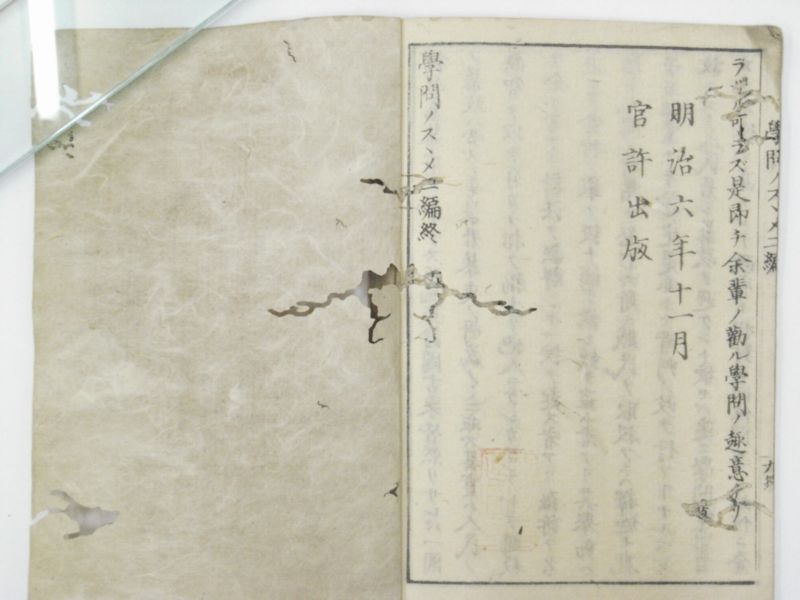 學問ノスヽメ二編
ラザル可ラズ是即チ余輩ノ勸ル學問ノ趣意ナリ
明治六年十一月
官許出版
學問ノスヽメ二編終